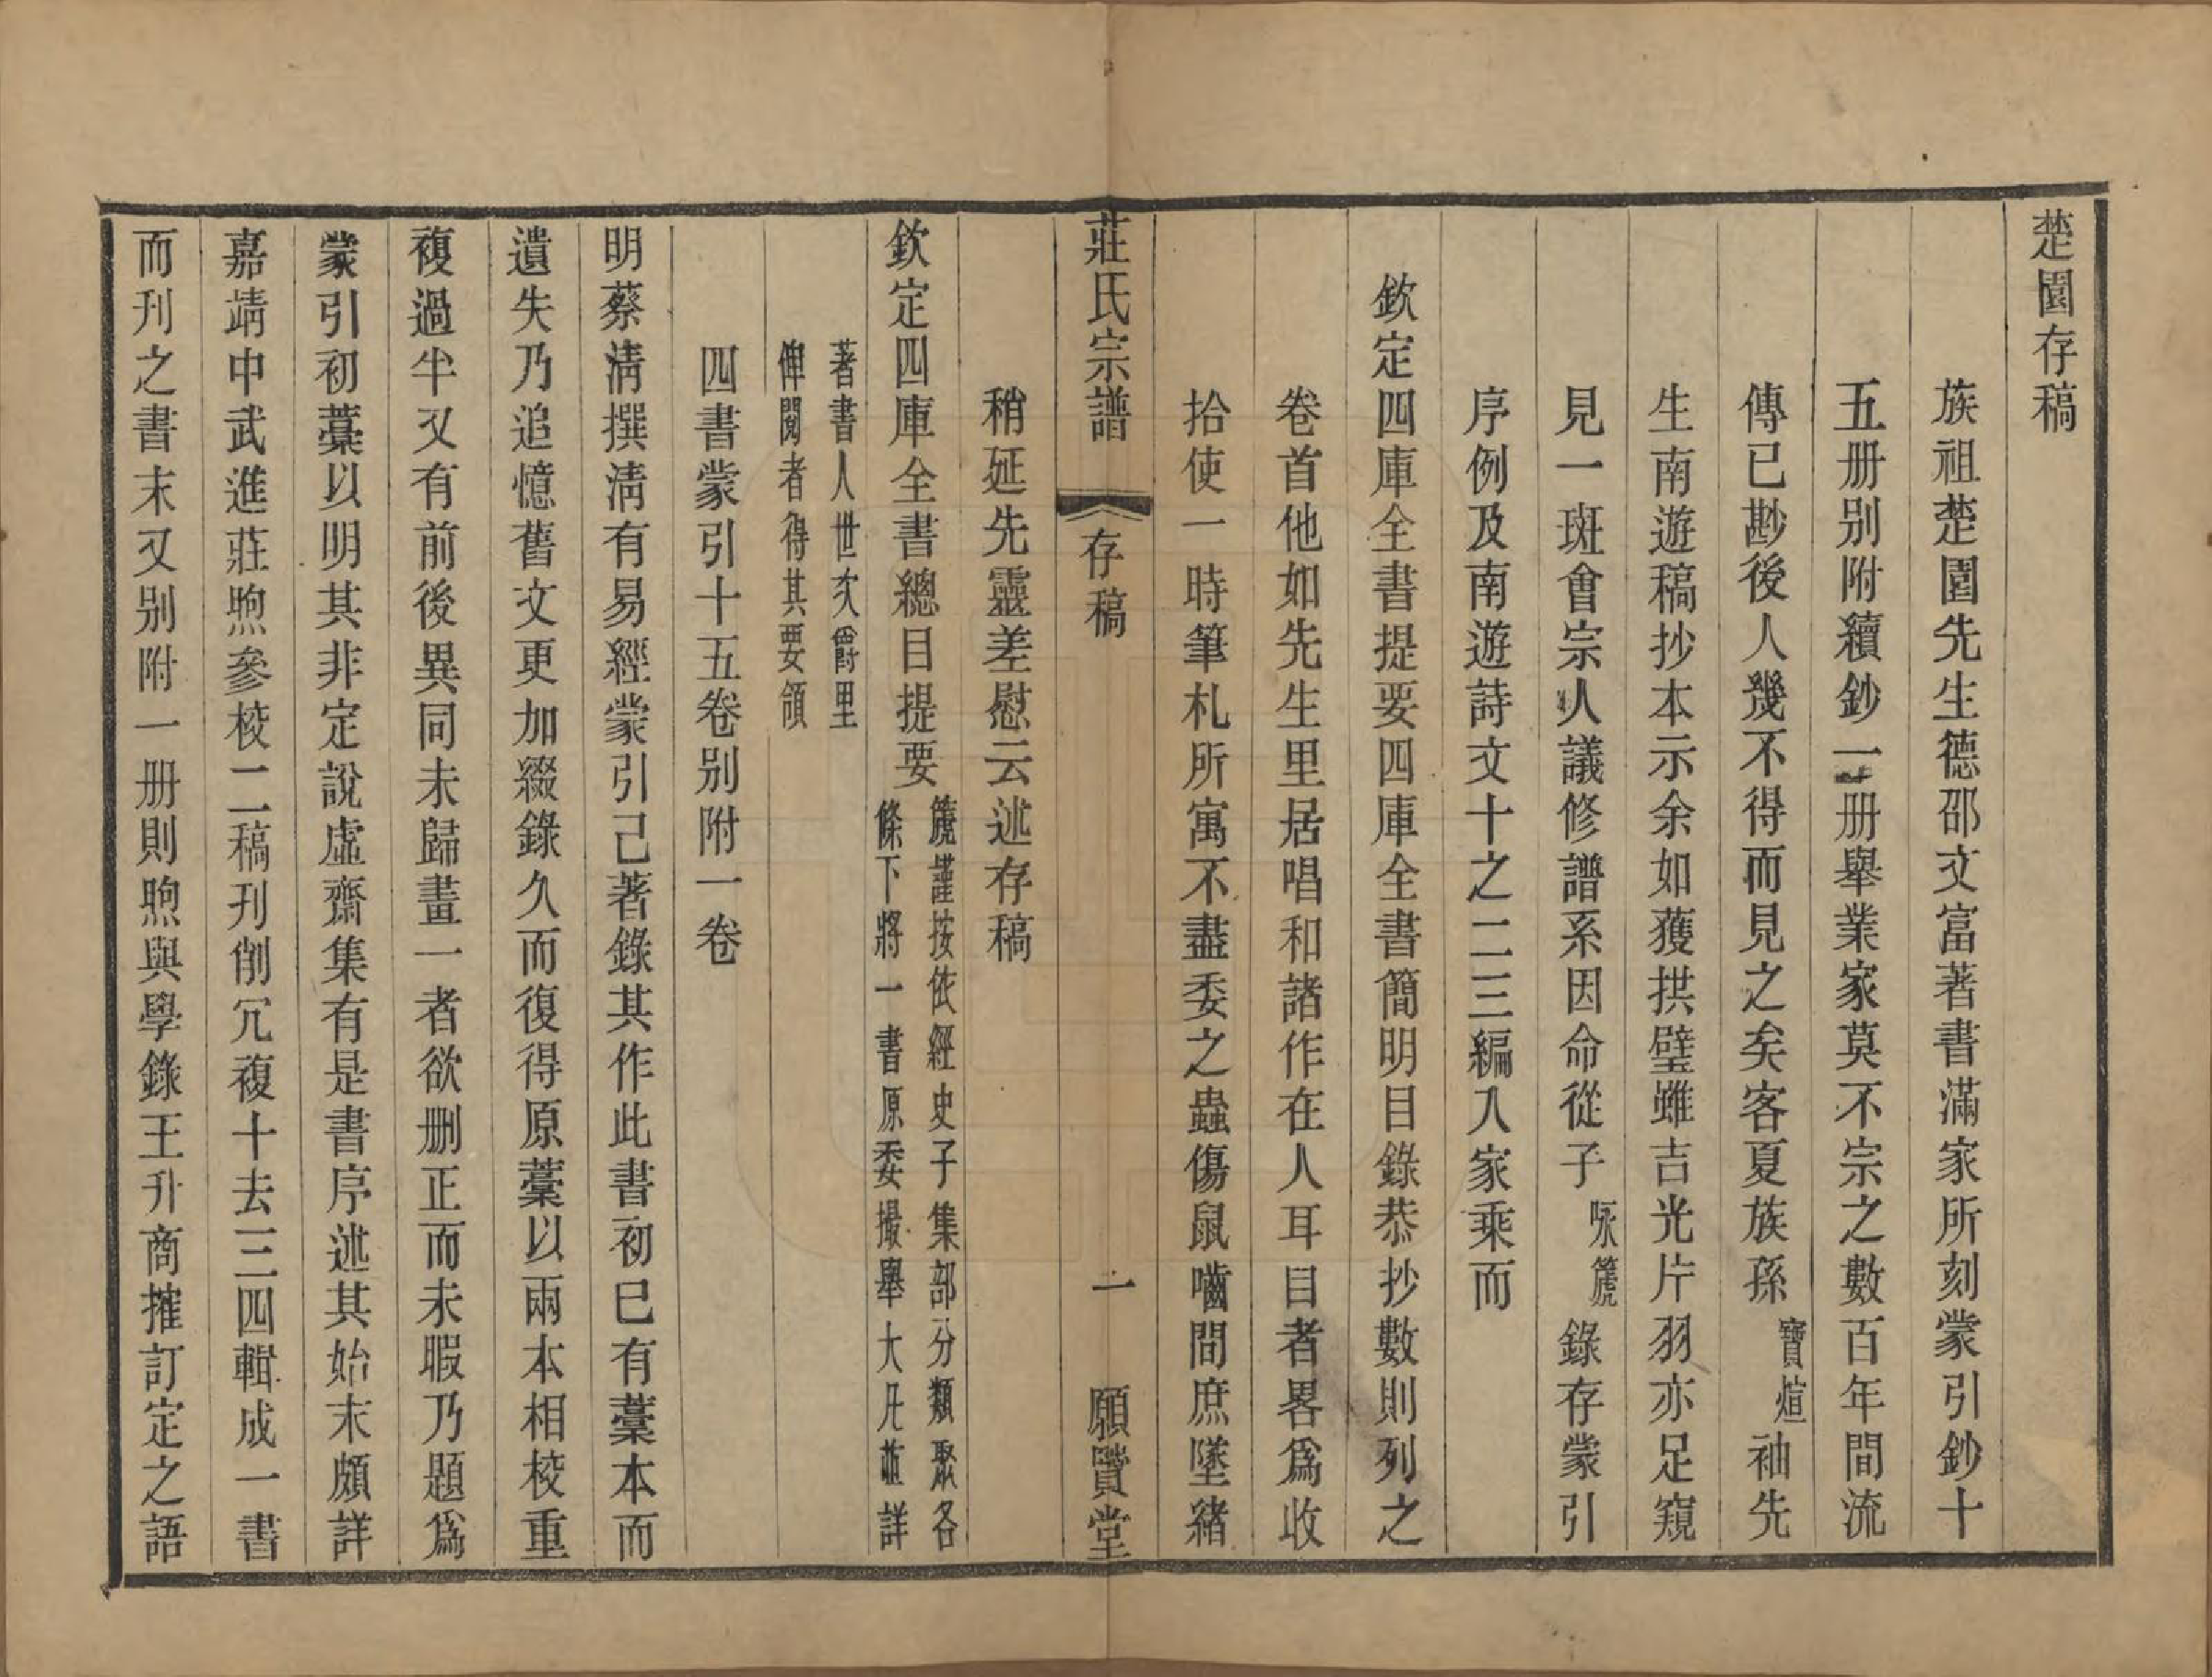 楚園存稿
族祖楚園先生德邵文富著書滿家所刻蒙引鈔十
五册别附續鈔一册舉業家莫不宗之數百年間流
傳已尠後人幾不得而見之矣客夏族孫寶煊袖先
生南遊稿抄本示余如獲拱璧雖吉光片羽亦足窺
見一斑會宗人議修譜系因命從子咏篪錄存蒙引
序例及南遊詩文十之二三編入家乘而
欽定四庫全書提要四庫全書簡明目錄恭抄數則列之
卷首他如先生里居唱和諸作在人耳目者畧爲收
拾使一時筆札所寓不盡委之蟲傷鼠嚙間庶墜緒
莊氏宗譜 存稿 一 願賢堂
稍延先靈差慰云述存稿
欽定四庫全書總目提要篪謹按依經史子集部分類聚各
條下將一書原委撮舉大凡並詳
著書人世次爵里
俾閱者得其要領
四書蒙引十五卷别附一卷
明蔡淸撰淸有易經蒙引己著錄其作此書初巳有藁本而
遺失乃追憶舊文更加綴錄久而復得原藁以兩本相校重
複過半又有前後異同未歸畫一者欲删正而未暇乃題爲
蒙引初藁以明其非定說虛齋集有是書序述其始末頗詳
嘉靖中武進莊煦參校二稿刊削冗複十去三四輯成一書
而刋之書末又别附一册則煦與學錄王升商搉訂定之語